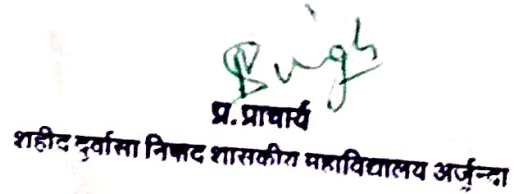 Singh
प्र. प्राचार्य
शहीद दुर्वासा निषाद शासकीय महाविद्यालय अर्जुन्दा